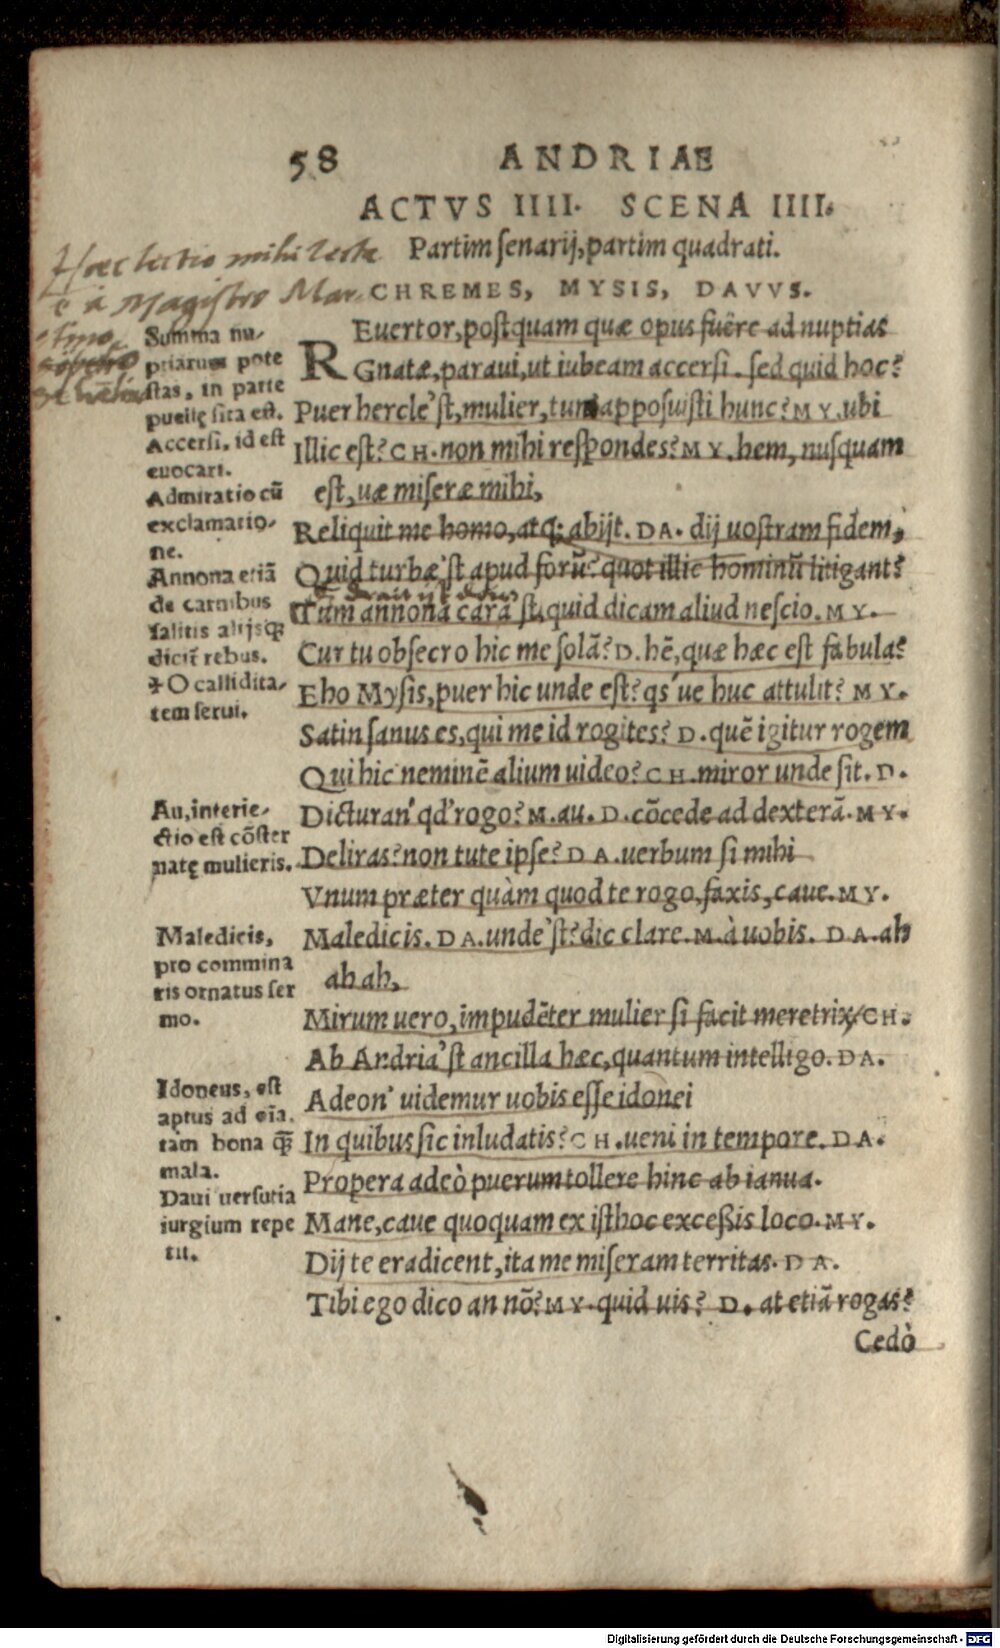 58 ANDRIAE
ACTVS IIII. SCENA IIII.
Partim senarij, partim quadrati.
Hæc lectio mihi lecta
e a Magistro Mar-
CHREMES, MYSIS, DAVVS.
Summa nu-
ptiarum pote
stas, in parte
puellę sita est.
Accersi, id est
euocari.
Admiratio cū
exclamatio-
ne.
Annona etiā
de carnibus
salitis alijsq꜀
dicit̄ rebus.
✢ O callidita-
tem serui.
Au, interie-
ctio est cōster
natę mulieris.
Maledicis,
pro commina
ris ornatus ser
mo.
Idoneus, est
aptus ad oīa,
tam bona q̄̃
mala.
Daui uersutia
iurgium repe
tit.
REuertor, postquam quæ opus fuêre ad nuptias
Gnatæ, paraui, ut iubeam accersi. sed quid hoc?
Puer hercle'st, mulier, tun apposuisti hunc? MY. ubi
Illic est? CH. non mihi respondes? MY. hem, nusquam
est, uæ miseræ mihi,
Reliquit me homo, atq; abijt. DA. dij uostram fidem,
Quid turbæ'st apud forū? quot illic hominū litigant?
Tum annona cara'st, quid dicam aliud nescio. MY.
Cur tu obsecro hic me solā? D. hē, quæ hæc est fabula?
Eho Mysis, puer hic unde est? qs'ue huc attulit? MY.
Satin sanus es, qui me id rogites? D. quē igitur rogem
Qui hic neminē alium uideo? CH. miror unde sit. D.
Dicturan' qd' rogo? M. au. D. cōcede ad dexterā. MY.
Deliras? non tute ipse? DA. uerbum si mihi
Vnum præter quàm quod te rogo, faxis, caue. MY.
Maledicis. DA. unde'st? dic clare. M. à uobis. DA. ah
ah ah,
Mirum uero, impudēter mulier si facit meretrix? CH.
Ab Andria'st ancilla hæc, quantum intelligo. DA.
Adeon' uidemur uobis esse idonei
In quibus sic inludatis? CH. ueni in tempore. DA.
Propera adeò puerum tollere hinc ab ianua.
Mane, caue quoquam ex isthoc exceßis loco. MY.
Dij te eradicent, ita me miseram territas. DA.
Tibi ego dico an nō? MY. quid uis? D. at etiā rogas?
Cedò
Digitalisierung gefördert durch die Deutsche Forschungsgemeinschaft - DFG